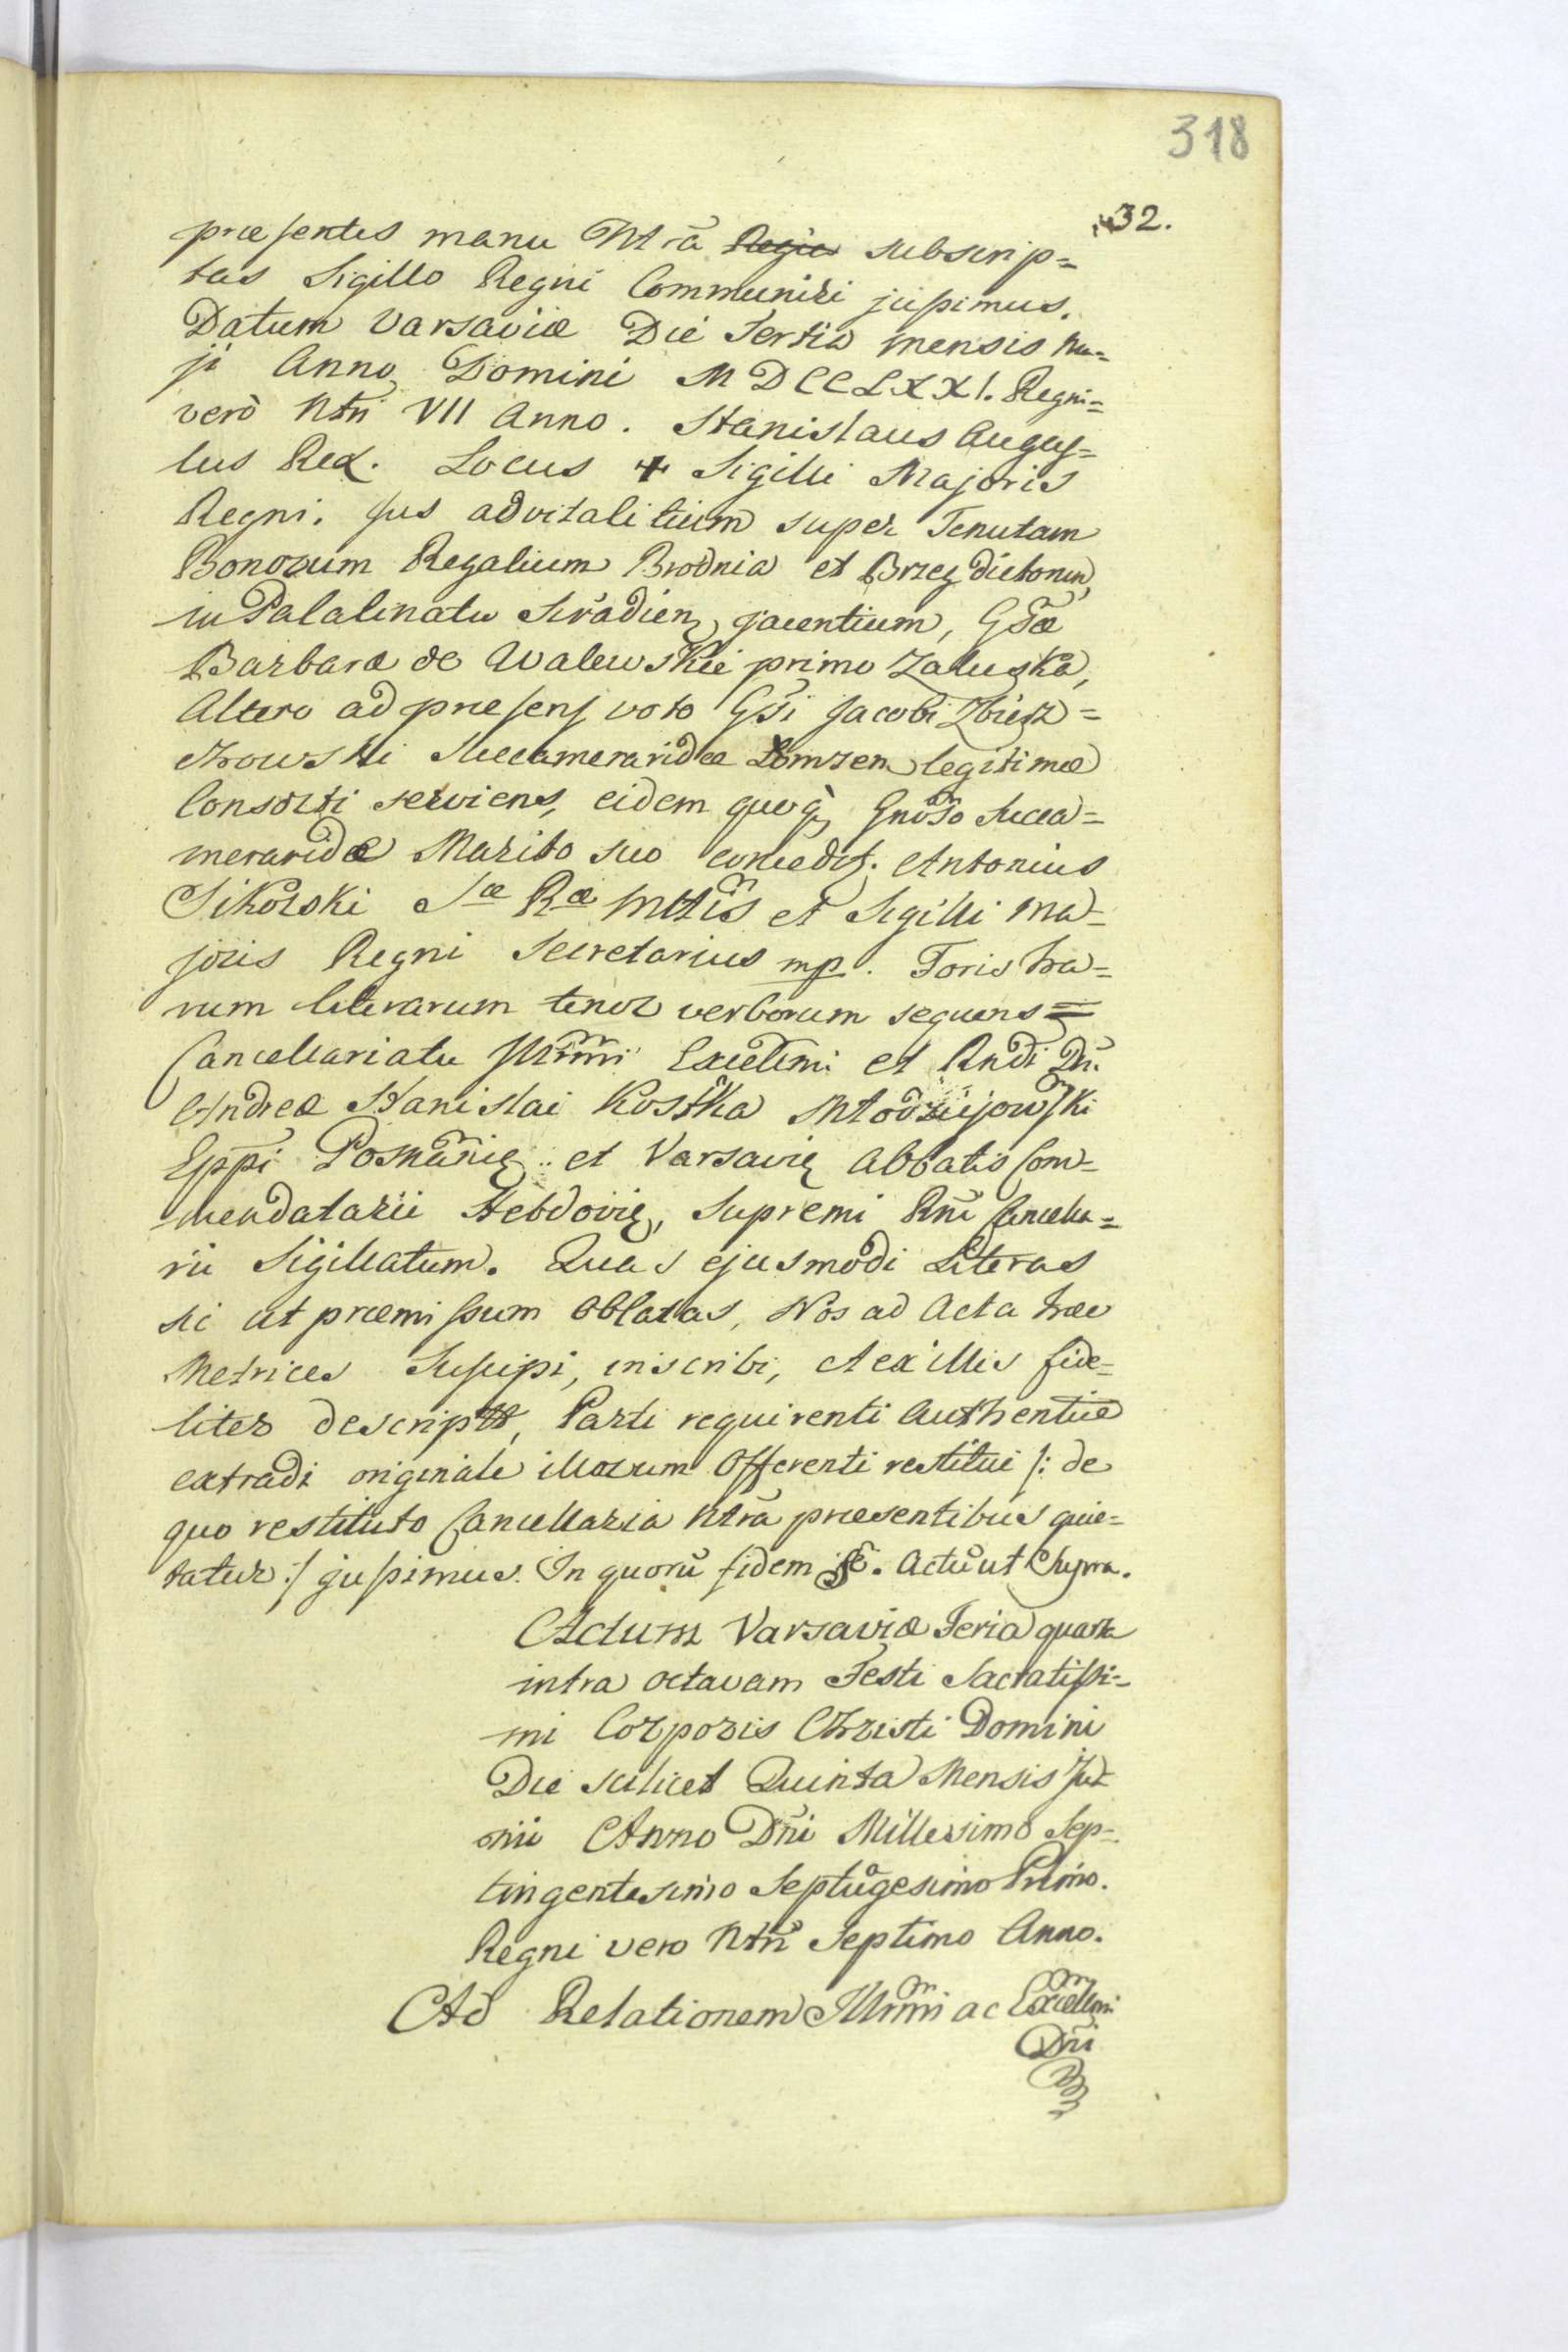 318
32.
præsentes manu Ntrã Regia subscrip=
tas Sigillo Regni Communiri jussimus.
Datum Varsaviæ Die Tertia mensis Ma=
ji Anno Domini MDCCLXXI. Regni=
verò Ntri VII Anno. Stanislaus Augus=
tus Rex. Locus + Sigilli Majoris
Regni. Jus advitalitium super Tenutam
Bonorum Regalium Brodnia et Brzeg dictorum
in Palatinatu Siradien jacentium, Gsæ
Barbaræ de Walewskie primo Załuska,
Altero ad præsens voto Gsi Jacobi Zbiesz=
chowski Succameraridæ Łomzen legitimæ
Consorti serviens, eidem quoq Gnoso Succa=
meraridæ Marito suo concedit. Antonius
Sikorski Sæ Ræ Mttis et Sigilli Ma=
joris Regni Secretarius mp. Toris tra=
rum literarum tenor verborum sequens =
Cancellariatu Illmi Excellmi et Rndi Dn.
Andreæ Stanislai Kostka Młodziejowski
Eppi Posnanię et Varsavię Abbatis Com=
mendatarii Hebdovię, Supremi Rni Cancella=
rii Sigillatum. Quas ejusmodi Literas
sic ut præmissum oblatas, Nos ad Acta træ
Metrices Suscipi, inscribi, et ex illis fide=
liter descript, Parti requirenti Authentice
extradi originale illorum Offerenti restitui /: de
quo restituto Cancellaria Ntrã præsentibus quie=
tatur :/ jussimus. In quorũ fidem &c. Actũ ut Supra.
Actum Varsaviæ Feria quarta
intra octavam Festi Sacratissi=
mi Corporis Christi Domini
Die scilicet Quinta Mensis Ju=
nii Anno Dñi Millesimo Sep=
tingentesimo Septuagesimo Primo.
Regni vero Ntri Septimo Anno.
Ad Relationem Illmi ac Excellmi
Dñi